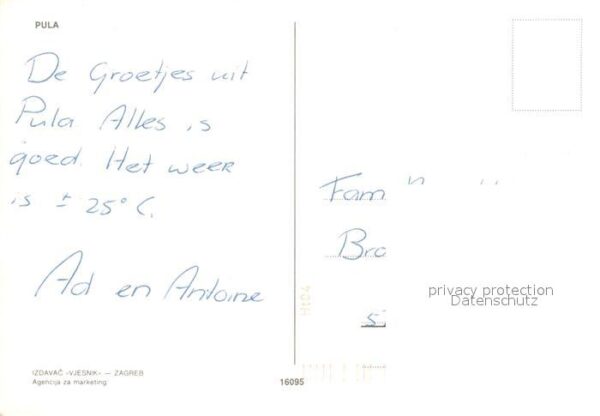 PULA
De Groetjes uit
Pula. Alles is
goed. Het weer
is ± 25° C.
Ad en Antoine
Fam
Bro
5
privacy protection
Datenschutz
H±04
IZDAVAČ »VJESNIK« — ZAGREB
Agencija za marketing
16095